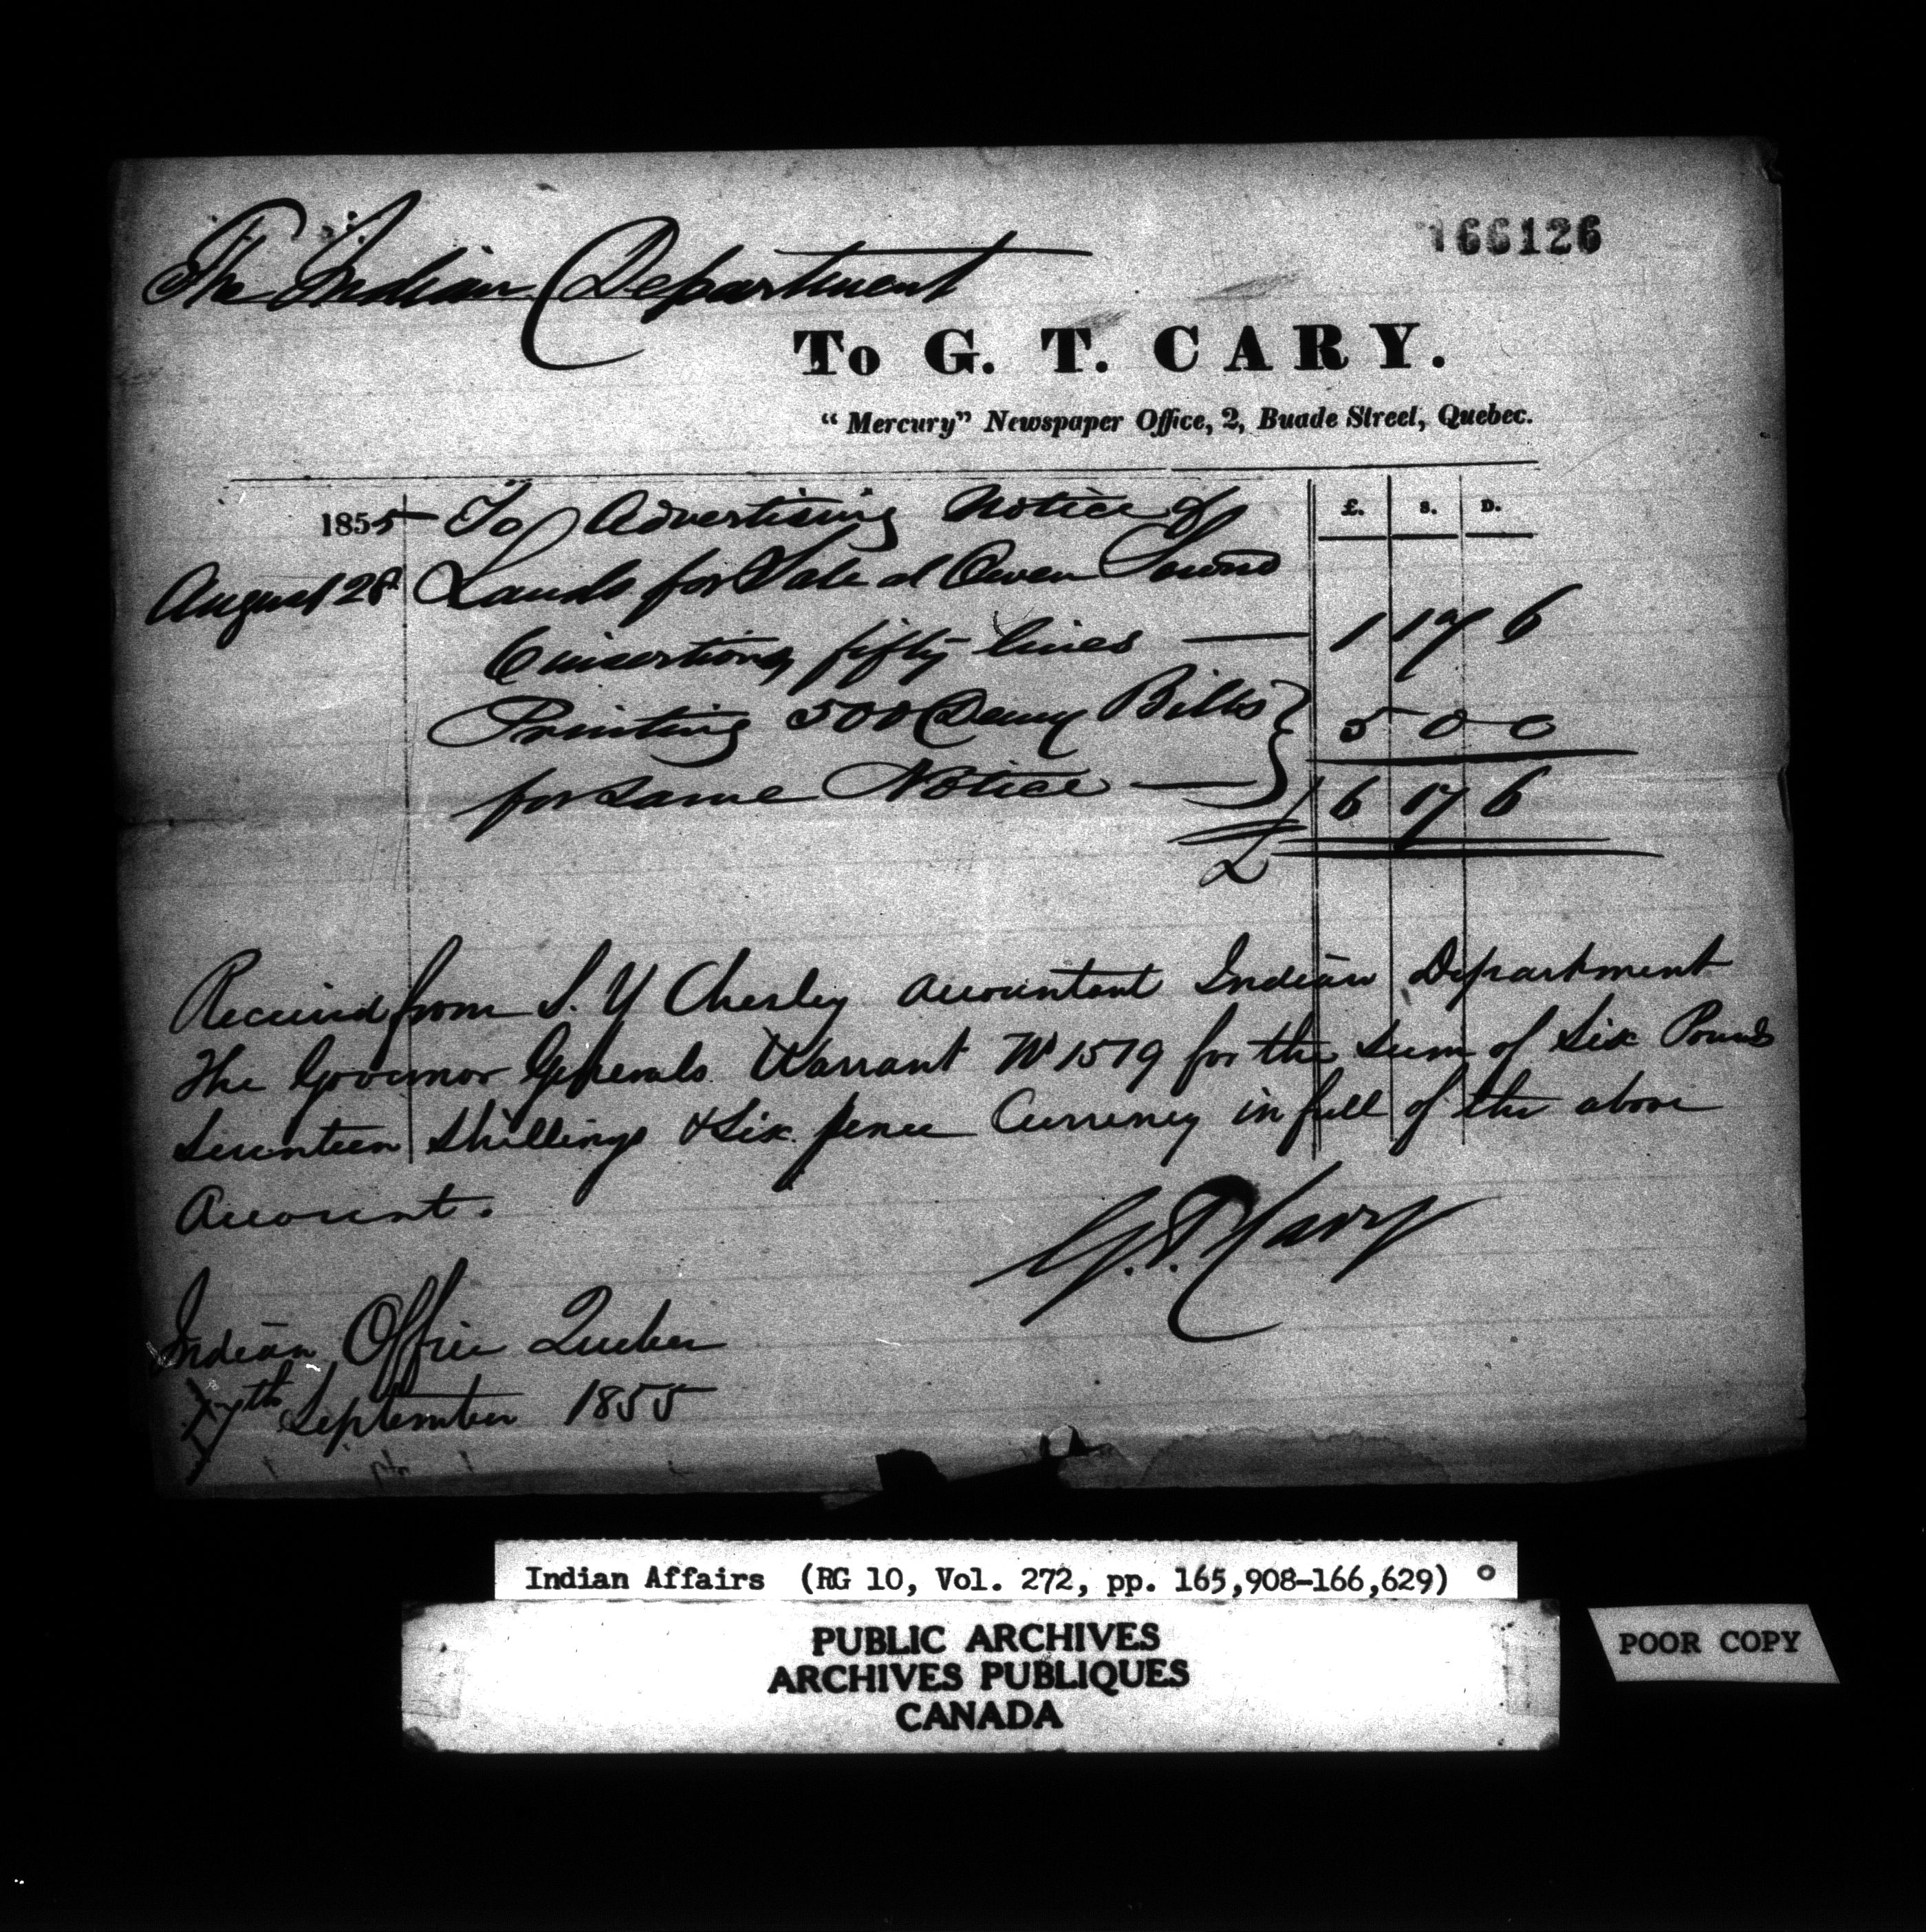 The Indian Department
166126
To G. T. CARY.
"Mercury" Newspaper Office, 2, Buade Street, Quebec.
1855 To Advertising Notice of £. S. D.
August 28 Lands for Sale at Owen Sound
6 insertions, fifty lines — 1 17 6
Printing 500 Demy Bills } 5 0 0
for same Notice — } 6 17 6
£
Received from S. Y Chesley Accountant Indian Department
The Governor Generals Warrant No 1579 for the Sum of Six Pounds
Seventeen Shillings & Six pence Currency in full of the above
Account.
G. T. Cary
Indian Office Quebec
7th September 1855
Indian Affairs (RG 10, Vol. 272, pp. 165,908-166,629)
PUBLIC ARCHIVES
ARCHIVES PUBLIQUES
CANADA
POOR COPY